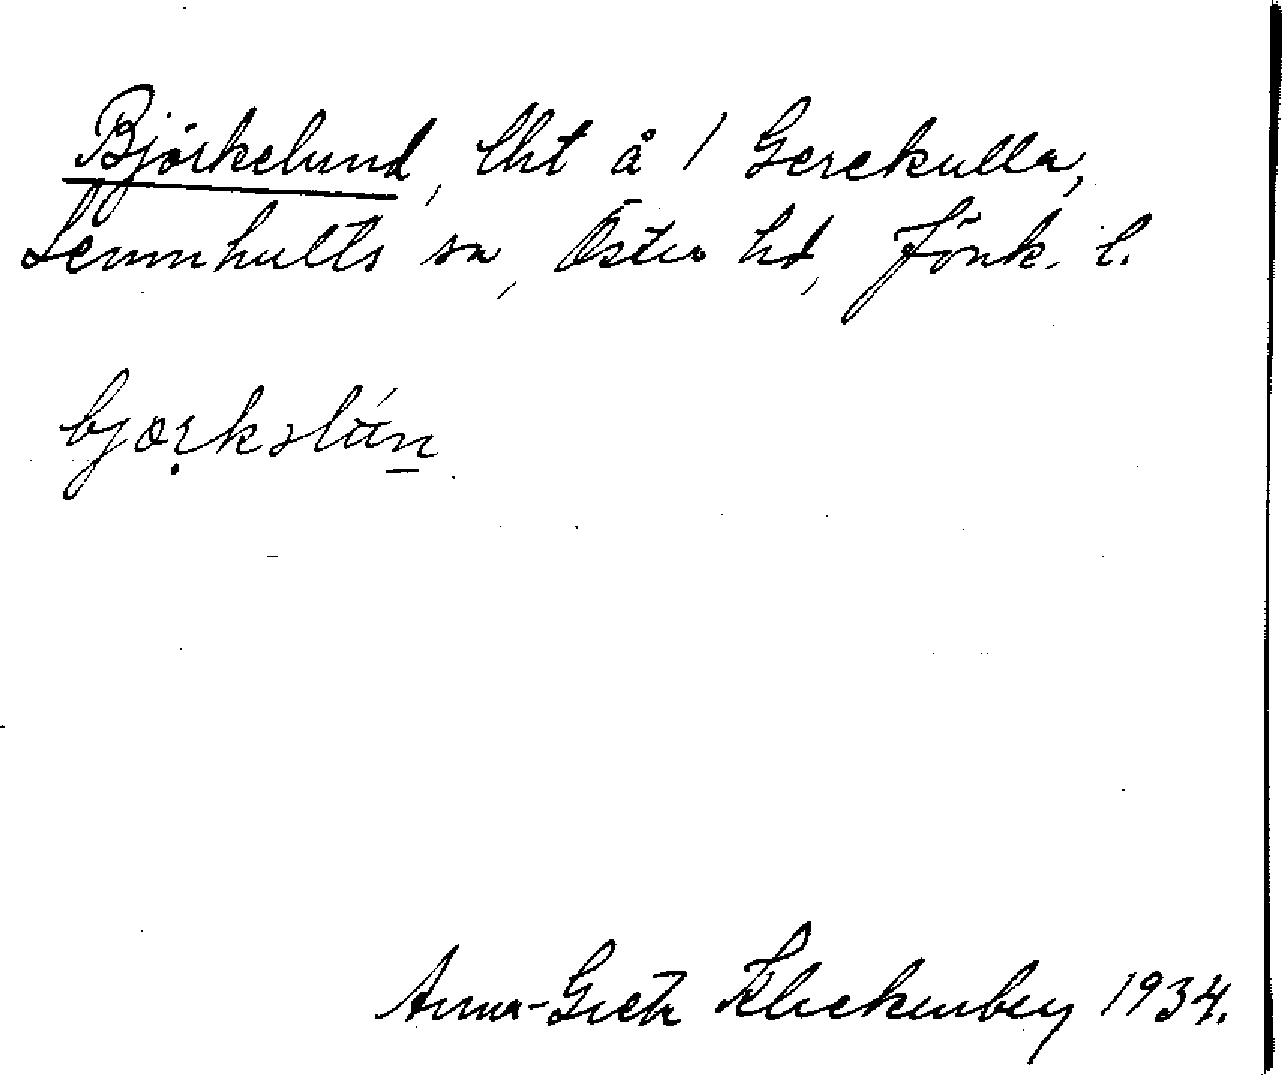 Björkelund, lht å 1 Gerekulla,
Lemnhults sn, Östra hd, Jönk. l.
bjorkəlún
Anna-Greta Klockenberg 1934.